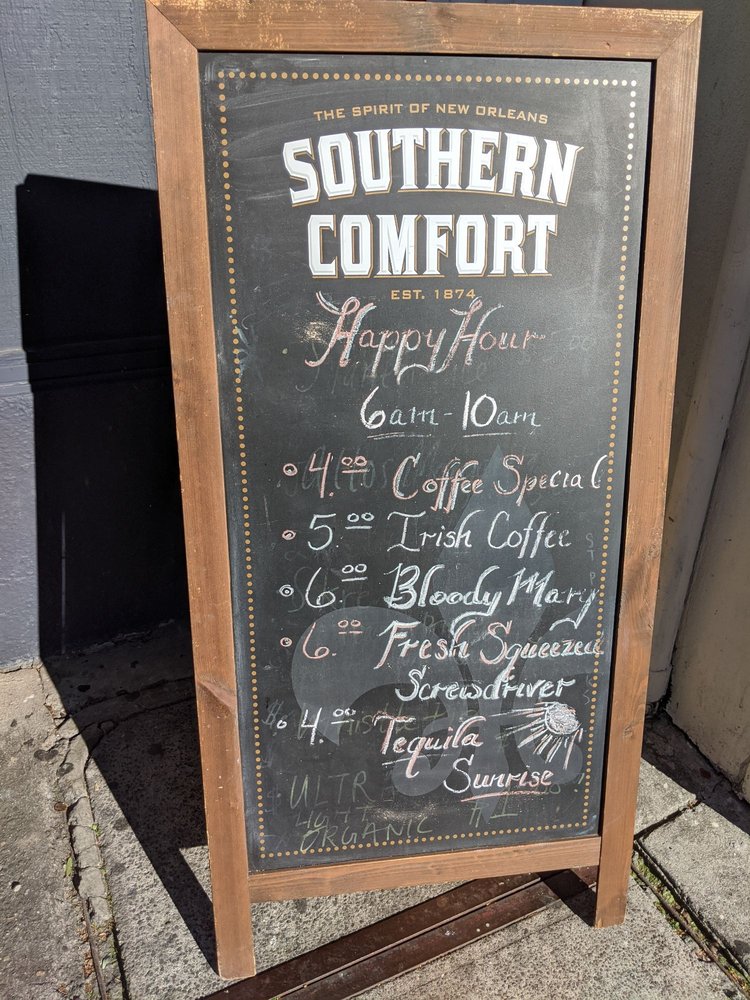 THE SPIRIT OF NEW ORLEANS
SOUTHERN
COMFORT
EST. 1874
Happy Hour
6am - 10am
4.00 Coffee Special
5.00 Irish Coffee
6.00 Bloody Mary
6.00 Fresh Squeezed
Screwdriver
4.00 Tequila
Sunrise
ULTR
ORGANIC